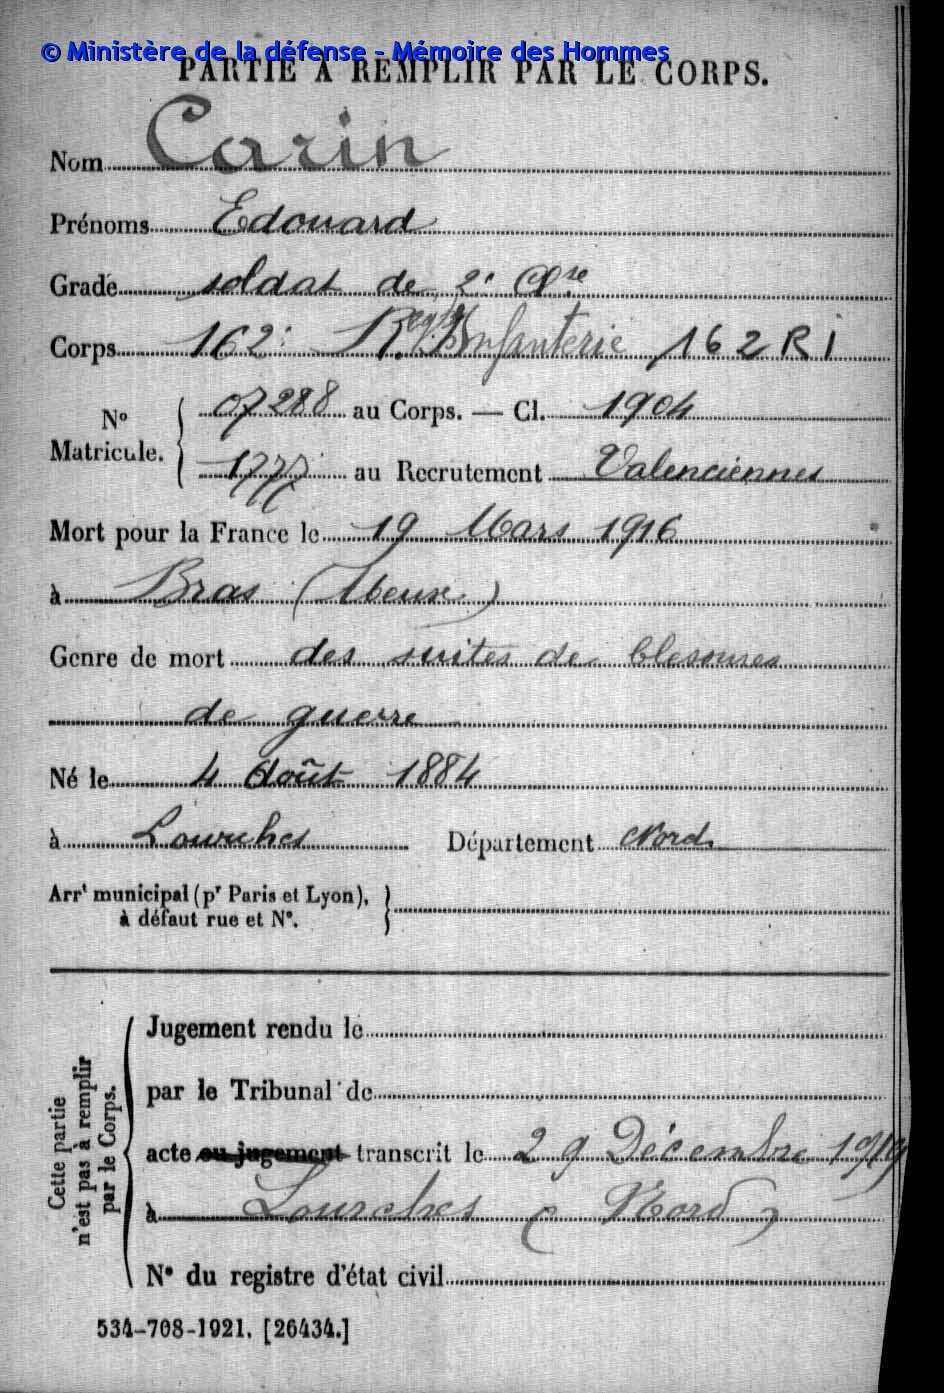 © Ministère de la défense - Mémoire des Hommes
PARTIE À REMPLIR PAR LE CORPS.
Nom Carin
Prénoms Edouard
Grade soldat de 2e Clse
Corps 162e R. d'Infanterie 162 RI
No Matricule. { 07288 au Corps. — Cl. 1904
1777 au Recrutement Valenciennes
Mort pour la France le 19 Mars 1916
à Bras (Meuse)
Genre de mort des suites de blessures
de guerre
Né le 4 Août 1884
à Lourches Département Nord
Arrt municipal (pr Paris et Lyon),
à défaut rue et No.
Cette partie
n'est pas à remplir
par le Corps.
Jugement rendu le
par le Tribunal de
acte ou jugement transcrit le 29 Décembre 1919
à Lourches (Nord)
No du registre d'état civil
534-708-1921. [26434.]